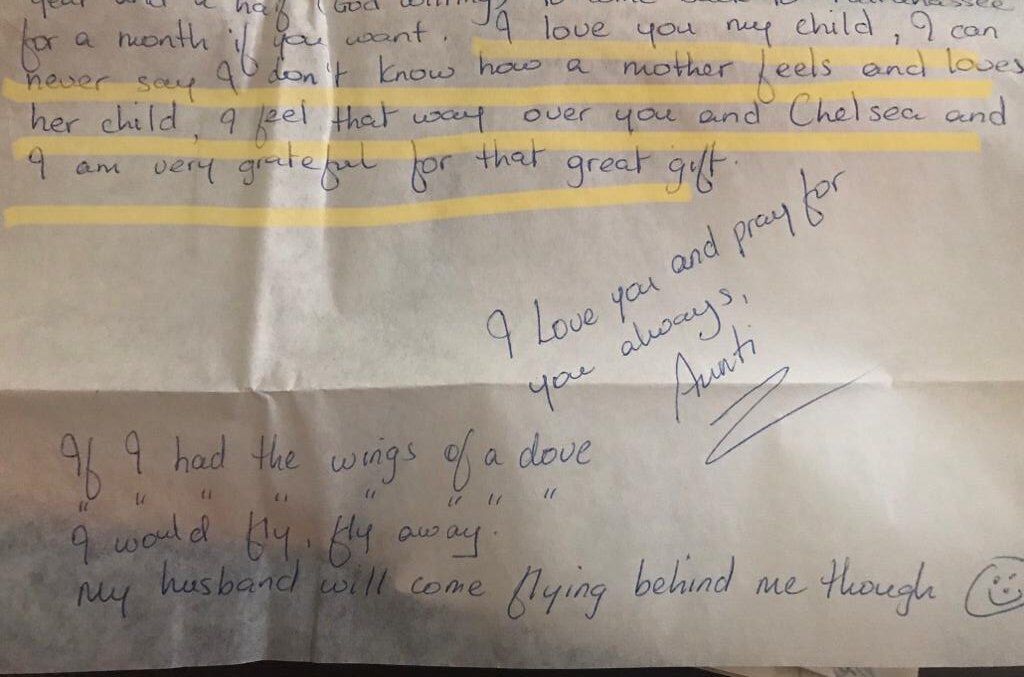 year and a half (God willing) to come back to Tallahassee
for a month if you want. I love you my child, I can
never say I don't know how a mother feels and loves
her child, I feel that way over you and Chelsea and
I am very grateful for that great gift.
I Love you and pray for
you always,
Aunti
If I had the wings of a dove
" " " " " " " "
I would fly, fly away.
My husband will come flying behind me though